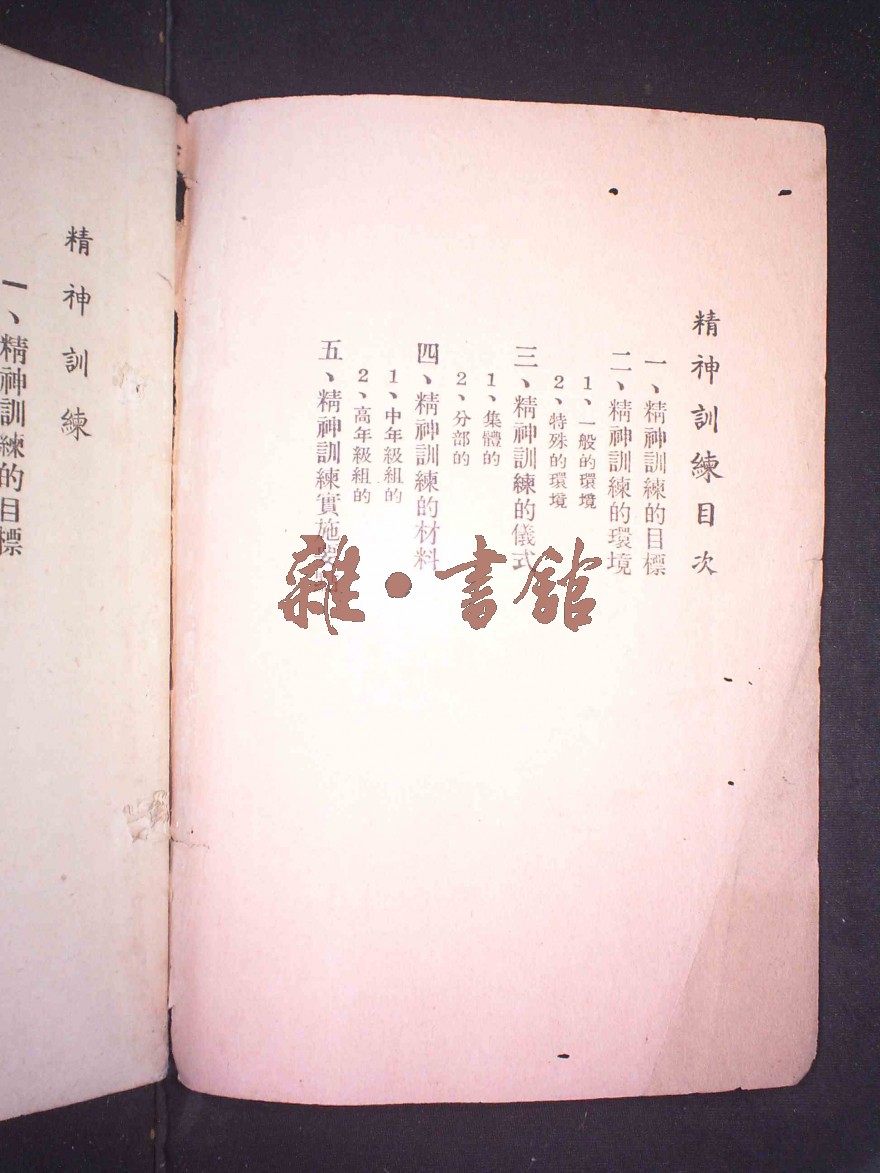 精神訓練目次
一、精神訓練的目標
二、精神訓練的環境
1、一般的環境
2、特殊的環境
三、精神訓練的儀式
1、集體的
2、分部的
四、精神訓練的材料
1、中年級組的
2、高年級組的
五、精神訓練實施
精神訓練
一、精神訓練的目標
雜·書館